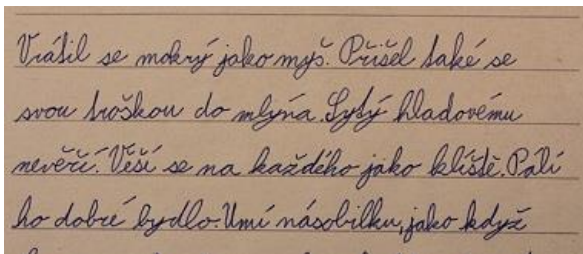 Vrátil se mokrý jako myš. Přišel také se
svou troškou do mlýna. Sytý hladovému
nevěří. Věší se na každého jako klíště. Pálí
ho dobré bydlo. Umí násobilku, jako když